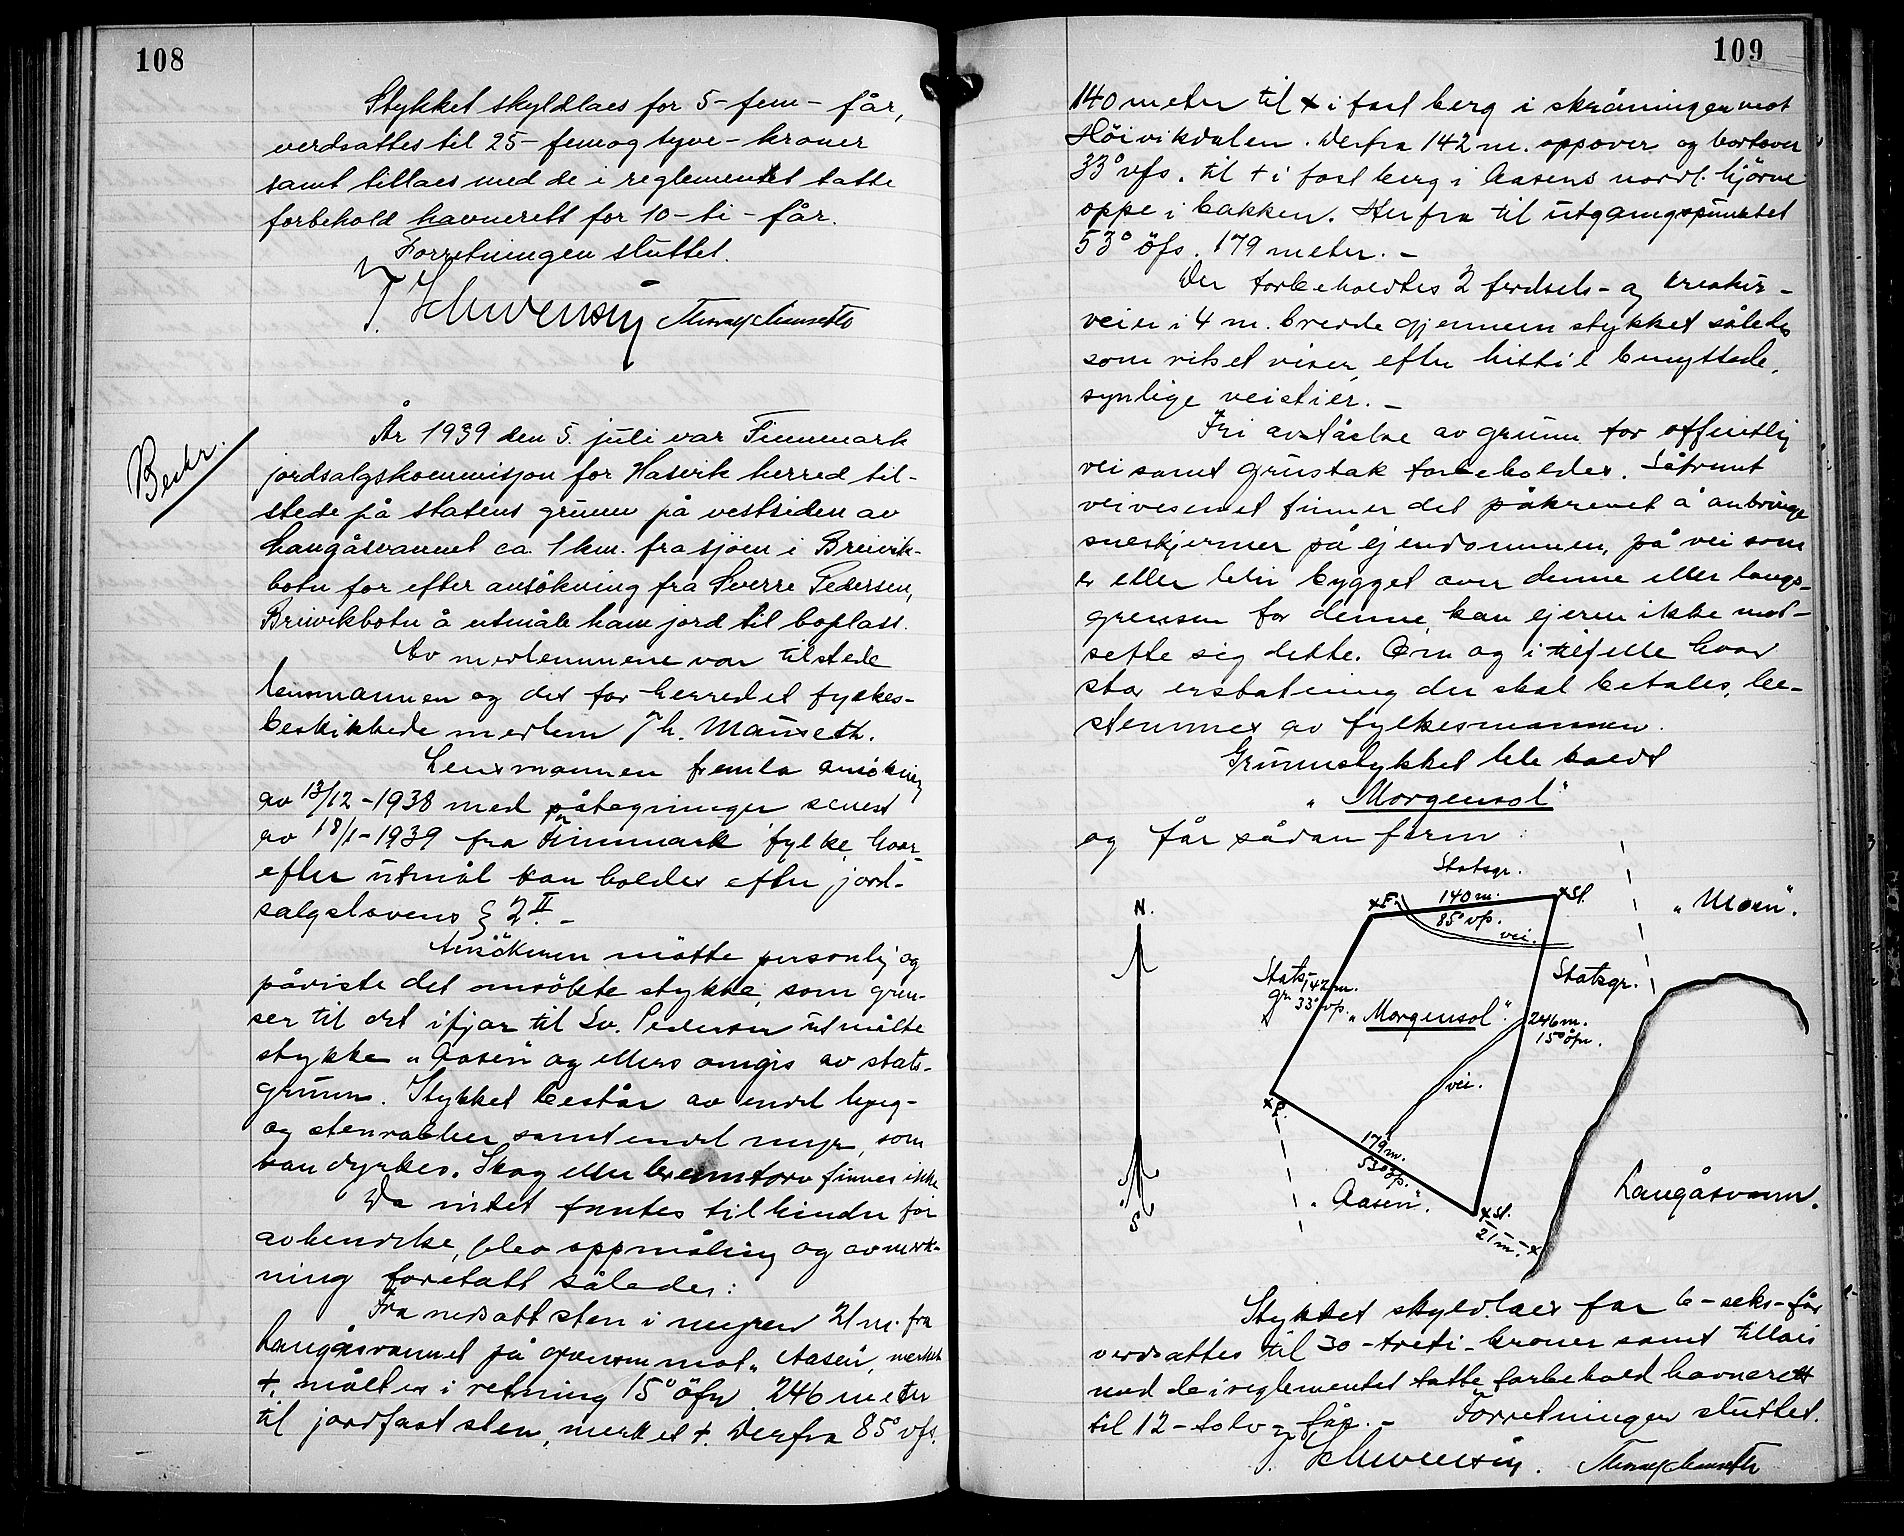 108
Stykket skyldlaes for 5 - fem - får,
verdsattes til 25 - femogtyve - kroner
samt tillaes med de i reglementet tatte
forbehold havnerett for 10 - ti - får.
Forretningen sluttet.
T. Schwensen
Bekr.
År 1939 den 5. juli var Finnmark
jordsalgskommisjon for Hasvik herred til-
stede på statens grunn på vestsiden av
Langåsvannet ca. 1 km. fra sjøen i Breivik-
botn for efter ansökning fra Sverre Pedersen,
Breivikbotn å utmåle ham jord til boplass.
Av medlemmene var tilstede
lensmannen og det for herredet fylkes-
beskikkede medlem Th. Mauseth.
Lensmannen fremla ansökning
av 13/12-1938 med påtegninger senest
av 18/1-1939 fra Finnmark fylke, hvor-
efter utmål kan holdes efter jord-
salgslovens § 2 II. -
Ansökeren mötte personlig og
påviste det omsökte stykke, som gren-
ser til det ifjor til Sv. Pedersen utmålte
stykke "Aasen" og ellers omgis av stats-
grunn. Stykket består av endel lyng-
og stenrabber samt endel myr, som
kan dyrkes. Skog eller bremtorv finnes ikke
Da intet fantes til hinder for
avhendelse, blev oppmåling og avmerk-
ning foretatt således:
Fra nedsatt sten i myren 21 m. fra
Langåsvannet på grensen mot "Aasen", merket
+, måltes i retning 15° öfn. 246 meter
til jordfast sten, merket +. Derfra 85° vfs.
109
140 meter til x i fast berg i skråningen mot
Höivikdalen. Derfra 142 m. oppover og bortover
33° vfs. til + i fast berg i Aasens nordl. hjörne
oppe i bakken. Herfra til utgangspunktet
53° öfs. 179 meter. -
Der forbeholdtes 2 ferdsels- og kreatur-
veier i 4 m. bredde gjennem stykket således
som risset viser, efter hittil benyttede,
synlige veistier. -
Fri avståelse av grunn for offentlig
vei samt grustak forbeholdes. Såfremt
veivesenet finner det påkrevet å anbringe
sneskjermer på ejendommen, på vei som
er eller blir bygget over denne eller langs-
grensen for denne, kan ejeren ikke mot-
sette sig dette. Om og i tilfelle hvor
stor erstatning der skal betales, be-
stemmes av fylkesmannen.
Grunnstykket ble kaldt
"Morgensol"
og får sådan form:
Statsgr.
N.
x F.
140 m.
85° vfs.
x St.
"Moen".
vei.
Stats
gr.
142 m.
33° vfs.
Statsgr.
"Morgensol".
246 m.
15° öfn.
vei.
x F.
179 m.
53° öfs.
"Aasen".
Langåsvann.
x St.
21 m. - x
S.
Stykket skyldlaes for 6 - seks - får
verdsattes til 30 - treti - kroner samt tillaes
med de i reglementet tatte forbehold havnerett
til 12 - tolv - får. - Forretningen sluttet.
T. Schwensen.